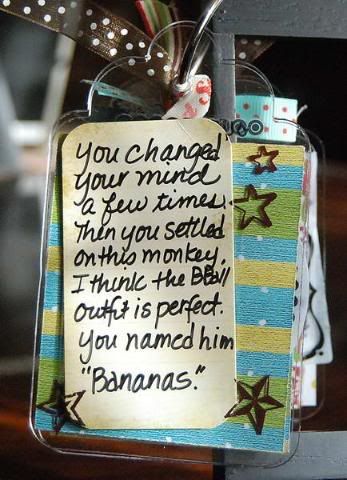 you changed
your mind
a few times.
Then you settled
on this monkey.
I think the BBall
outfit is perfect.
you named him
"Bananas."